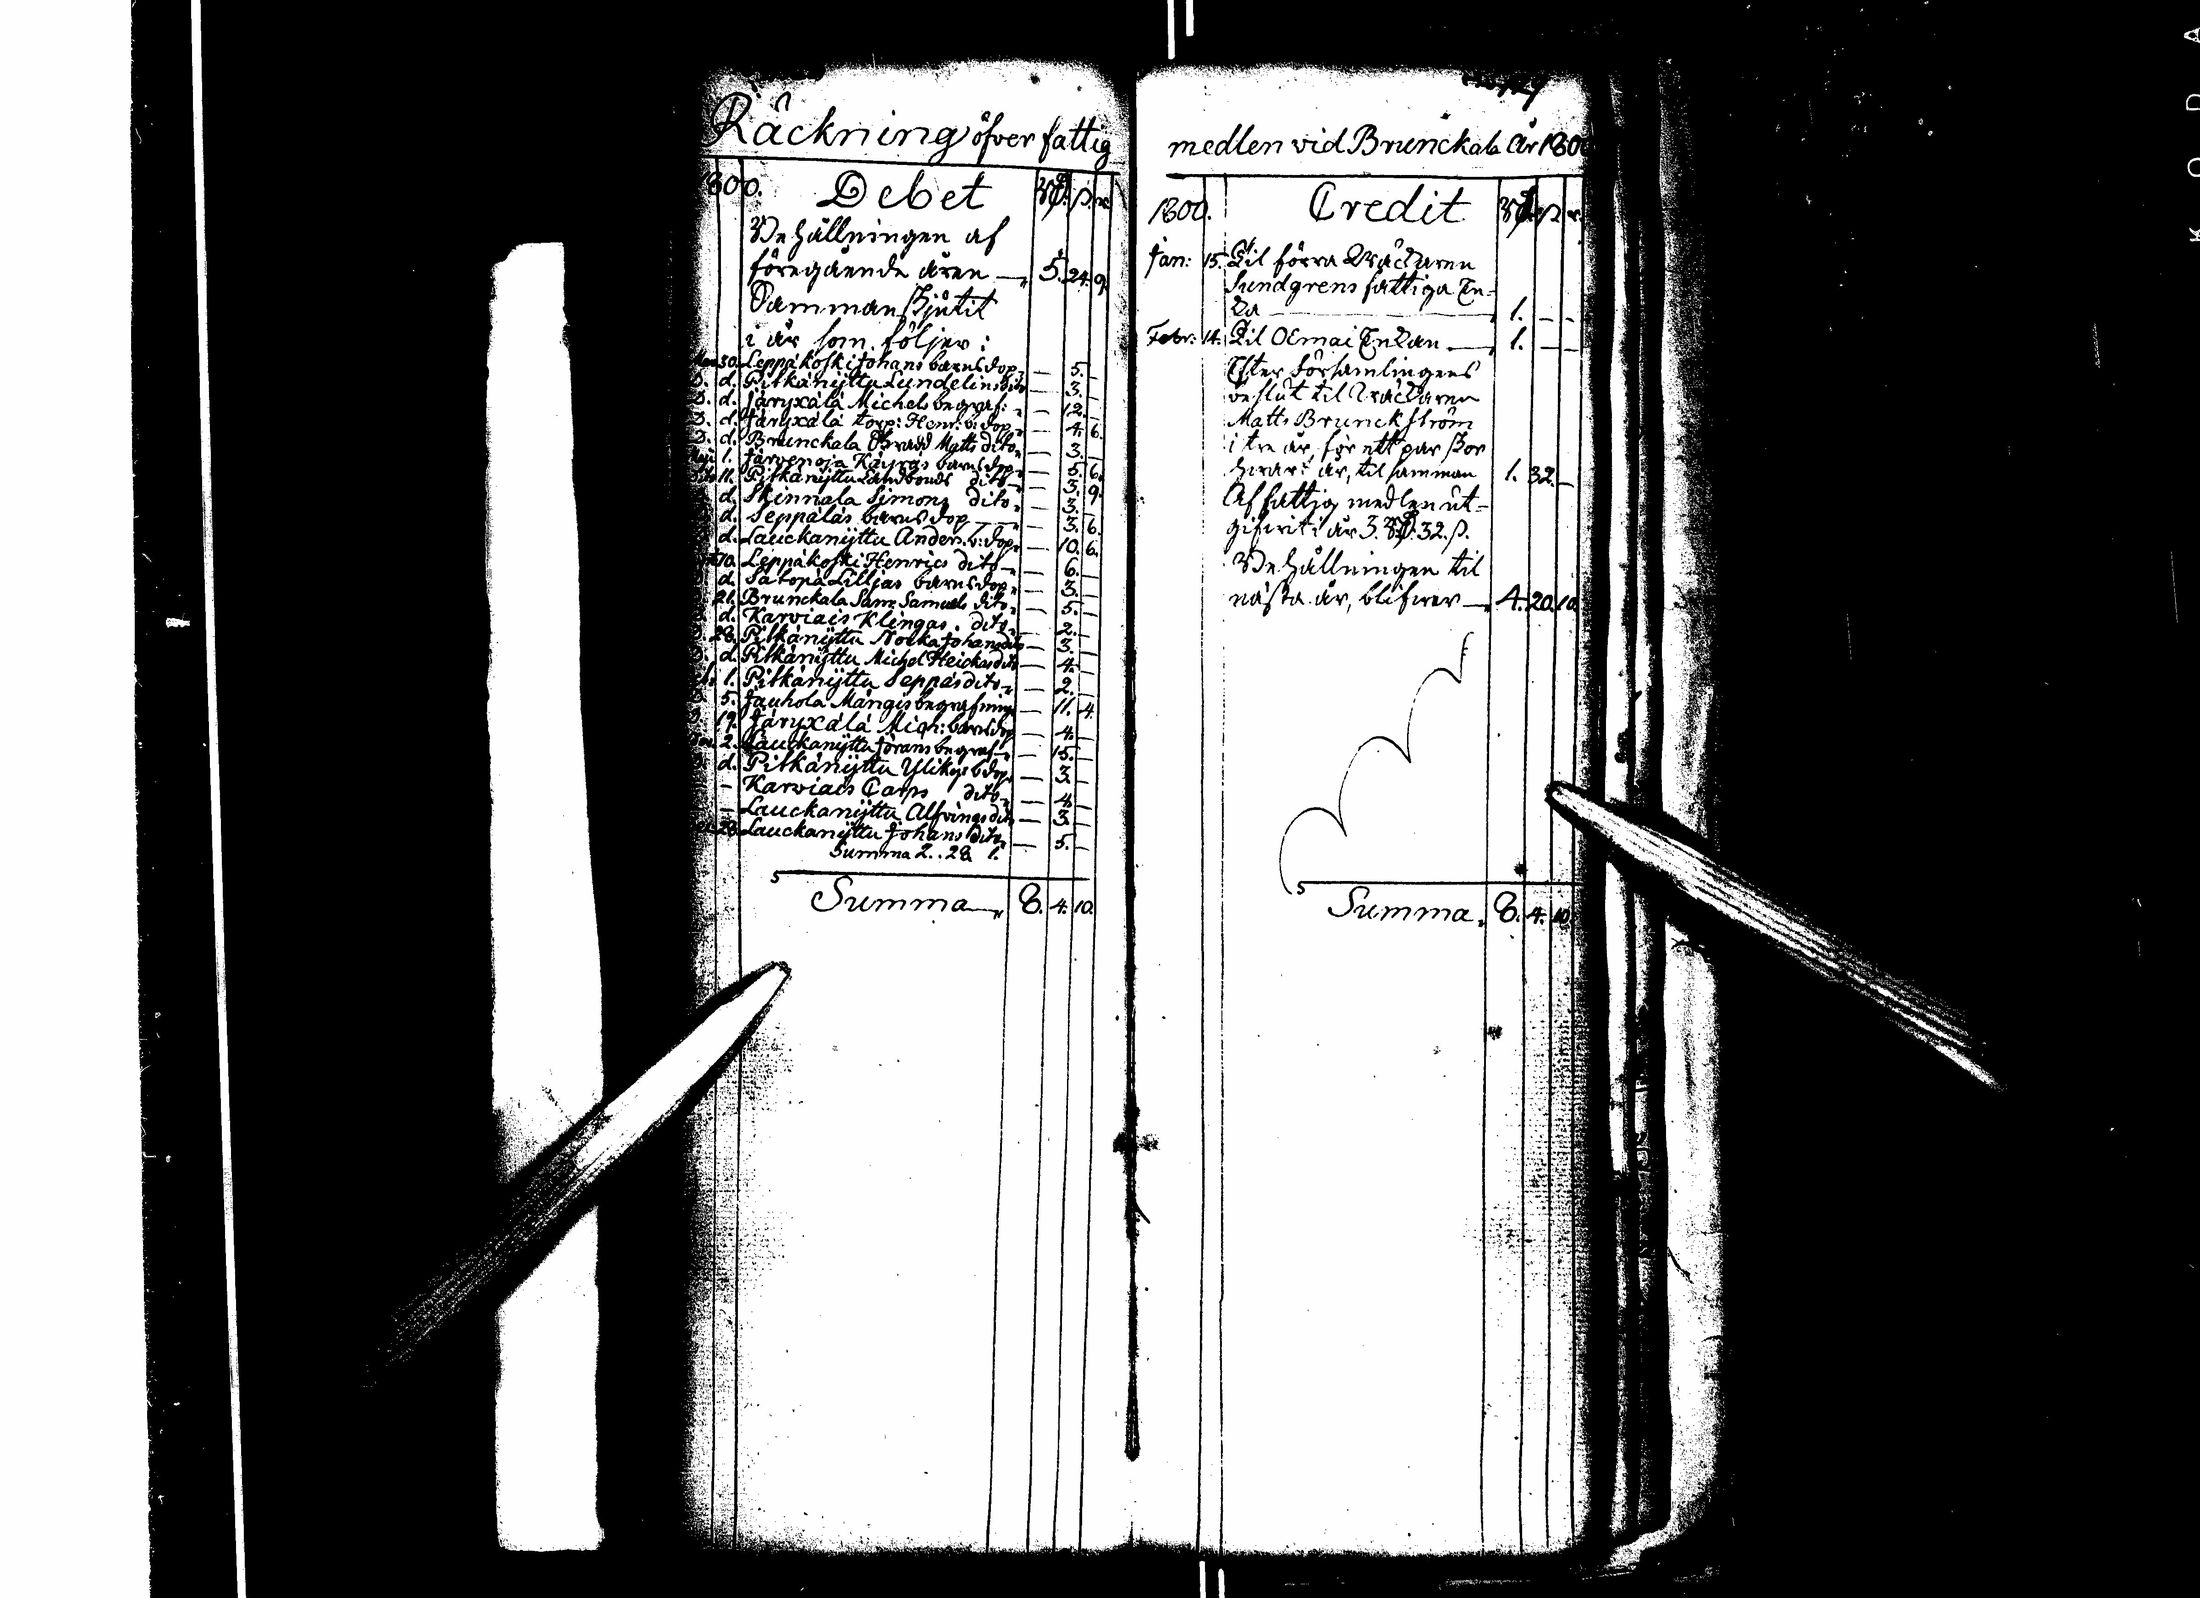 Räckning öfver fattig
1800. Debet Rd. ß. r.
Behållningen af
föregående åren — 5. 24. 9.
Samman skjutit
i år som följer:
30. Leppäkoski Johans barnsdop — 5. —
D. d. Pitkänijttu Lundelins dito — 3. —
D. d. Järyxälä Michels begraf: — 12. —
D. d. Järyxälä torp: Henr: b: dop — 4. 6.
D. d. Brunckala Matts dito — 3. —
Maji 1. Järvenoja barnsdop — 5. 6.
11. Pitkänijttu Landbonds dito — 3. 9.
d. Skinnala Simons dito — 3. —
d. Seppäläs barnsdop — 3. 6.
d. Lauckanijttu Anders b: dop — 10. 6.
10. Leppäkoski Henrics dito — 6. —
d. Satopä Liljas barnsdop — 3. —
21. Brunckala Samuels dito — 5. —
d. Karviais Klingas dito — 2. —
28. Pitkänijttu Nocka Johans dito — 3. —
d. Pitkänijttu Michel Heickas dito — 4. —
1. Pitkänijttu Seppäs dito — 2. —
5. Jauhola Mångis begrafning — 11. 4.
19. Järyxälä Mich: barnsdop — 4. —
2. Lauckanijttu Jörans begraf — 15. —
d. Pitkänijttu b dop — 3. —
— Karviais Carps dito — 4. —
— Lauckanijttu Alfvings dito — 3. —
28. Lauckanijttu Johans dito — 5. —
Summa 2. 28. 1.
Summa 8. 4. 10.
medlen vid Brunckala År 1800
1800. Credit Rd. ß. r.
Jan: 15. Til förra Kräckaren
Sundgrens fattiga En-
ka 1. — —
Febr: 14. Til Enkan — 1. — —
Efter Församlingens
beslut til
Matts Brunckström
i tre år, för ett par skor
hvart år, til samman 1. 32. —
Af fattig medlen ut-
gifvit i år 3. Rd. 32. ß.
Behållningen til
nästa år, blifver — 4. 20. 10.
Summa 8. 4. 10.
KODA